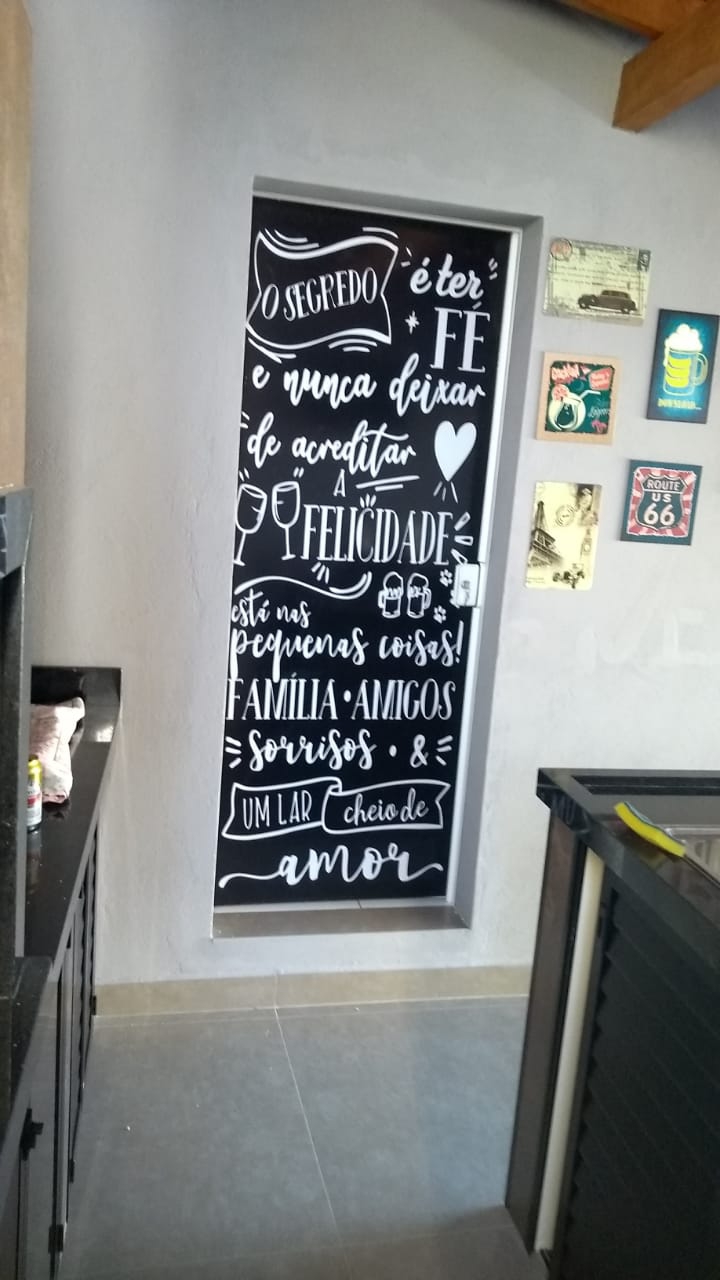 O SEGREDO
é ter
FÉ
e nunca deixar
de acreditar
A
FELICIDADE
está nas
pequenas coisas!
FAMÍLIA • AMIGOS
sorrisos • &
UM LAR cheio de
amor
DOWNLOAD...
ROUTE
US
66